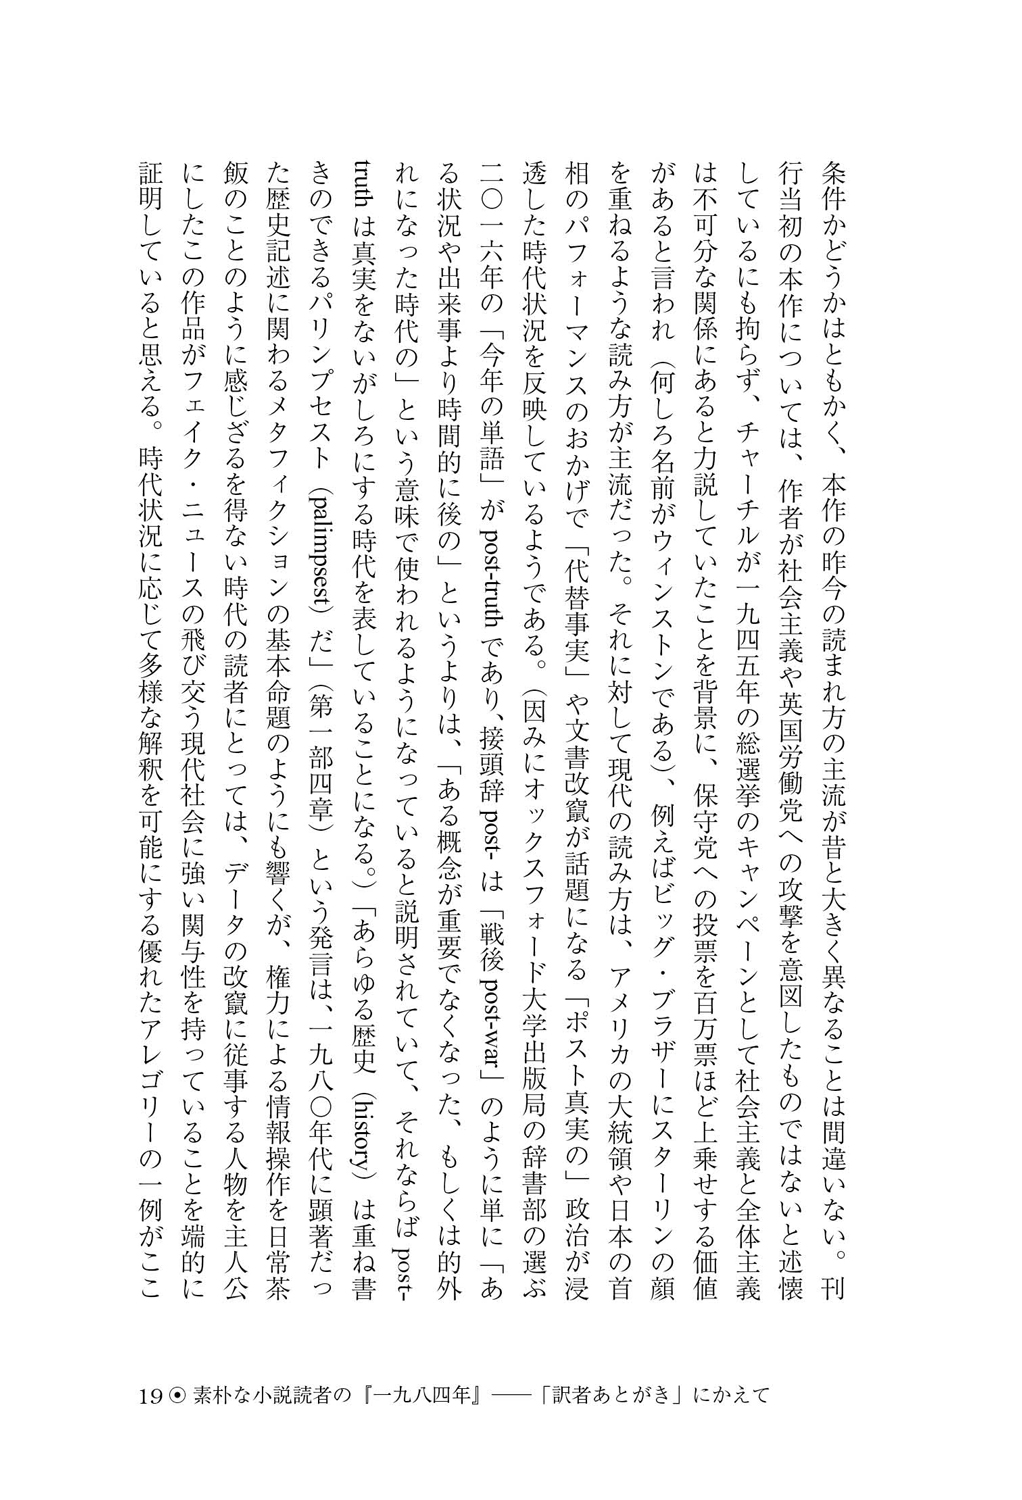 条件かどうかはともかく、本作の昨今の読まれ方の主流が昔と大きく異なることは間違いない。刊
行当初の本作については、作者が社会主義や英国労働党への攻撃を意図したものではないと述懐
しているにも拘らず、チャーチルが一九四五年の総選挙のキャンペーンとして社会主義と全体主義
は不可分な関係にあると力説していたことを背景に、保守党への投票を百万票ほど上乗せする価値
があると言われ（何しろ名前がウィンストンである）、例えばビッグ・ブラザーにスターリンの顔
を重ねるような読み方が主流だった。それに対して現代の読み方は、アメリカの大統領や日本の首
相のパフォーマンスのおかげで「代替事実」や文書改竄が話題になる「ポスト真実の」政治が浸
透した時代状況を反映しているようである。（因みにオックスフォード大学出版局の辞書部の選ぶ
二〇一六年の「今年の単語」が post-truth であり、接頭辞 post- は「戦後 post-war」のように単に「あ
る状況や出来事より時間的に後の」というよりは、「ある概念が重要でなくなった、もしくは的外
れになった時代の」という意味で使われるようになっていると説明されていて、それならば post-
truth は真実をないがしろにする時代を表していることになる。）「あらゆる歴史（history）は重ね書
きのできるパリンプセスト（palimpsest）だ」（第一部四章）という発言は、一九八〇年代に顕著だっ
た歴史記述に関わるメタフィクションの基本命題のようにも響くが、権力による情報操作を日常茶
飯のことのように感じざるを得ない時代の読者にとっては、データの改竄に従事する人物を主人公
にしたこの作品がフェイク・ニュースの飛び交う現代社会に強い関与性を持っていることを端的に
証明していると思える。時代状況に応じて多様な解釈を可能にする優れたアレゴリーの一例がここ
19⦿素朴な小説読者の『一九八四年』――「訳者あとがき」にかえて